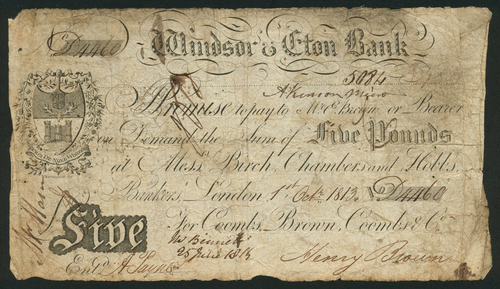 D4460
Windsor & Eton Bank
5084
I Promise to pay to Mr. C. Brown or Bearer
on Demand the Sum of Five Pounds
at Mess.rs Birch, Chambers and Hobbs,
Bankers, London 1st Oct. 1813. D4460
For Coombs, Brown, Coombs & Co.
Five
25 June 1813
Ent.d Henry Brown